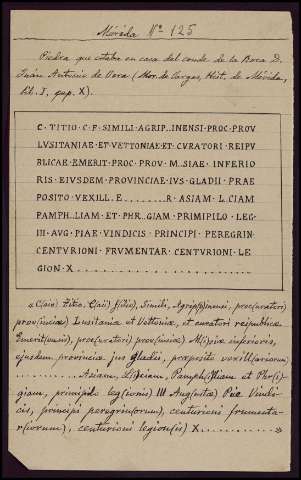 Mérida Nº 125
Piedra que estaba en casa del conde de la Roca D.
Juán Antonio de Vera (Mor. de Vargas, Hist. de Mérida,
lib. I, cap. X).
C · TITIO · C · F · SIMILI · AGRIP..INENSI · PROC · PROV
LVSITANIAE · ET · VETTONIAE · ET · CVRATORI · REIPV
BLICAE · EMERIT · PROC · PROV · M.SIAE · INFERIO
RIS · EIVSDEM · PROVINCIAE · IVS · GLADII · PRAE
POSITO · VEXILL · E........R · ASIAM · L.CIAM
PAMPH.LIAM · ET · PHR.GIAM · PRIMIPILO · LEG ·
III · AVG · PIAE · VINDICIS · PRINCIPI · PEREGRIN ·
CENTVRIONI · FRVMENTAR · CENTVRIONI · LE
GION · X ..........
«C(aio) Titio C(aii) f(ilio), Simili, Agrip(p)inensi, proc(uratori)
prov(inciae) Lusitaniæ et Vettoniæ, et curatori reipublicæ
Emerit(ensis), proc(uratori) prov(inciae) M(o)siæ inferioris,
ejusdem provinciæ jus gladii, præposito vexill(ariorum)
.......... Asiam, L(i)ciam, Pamph(i)liam et Phr(i)-
giam, primipilo leg(ionis) III Aug(ustæ) Piæ Vindi-
cis, principi peregrin(orum), centurioni frumenta-
r(iorum), centurioni legion(is) X ........»